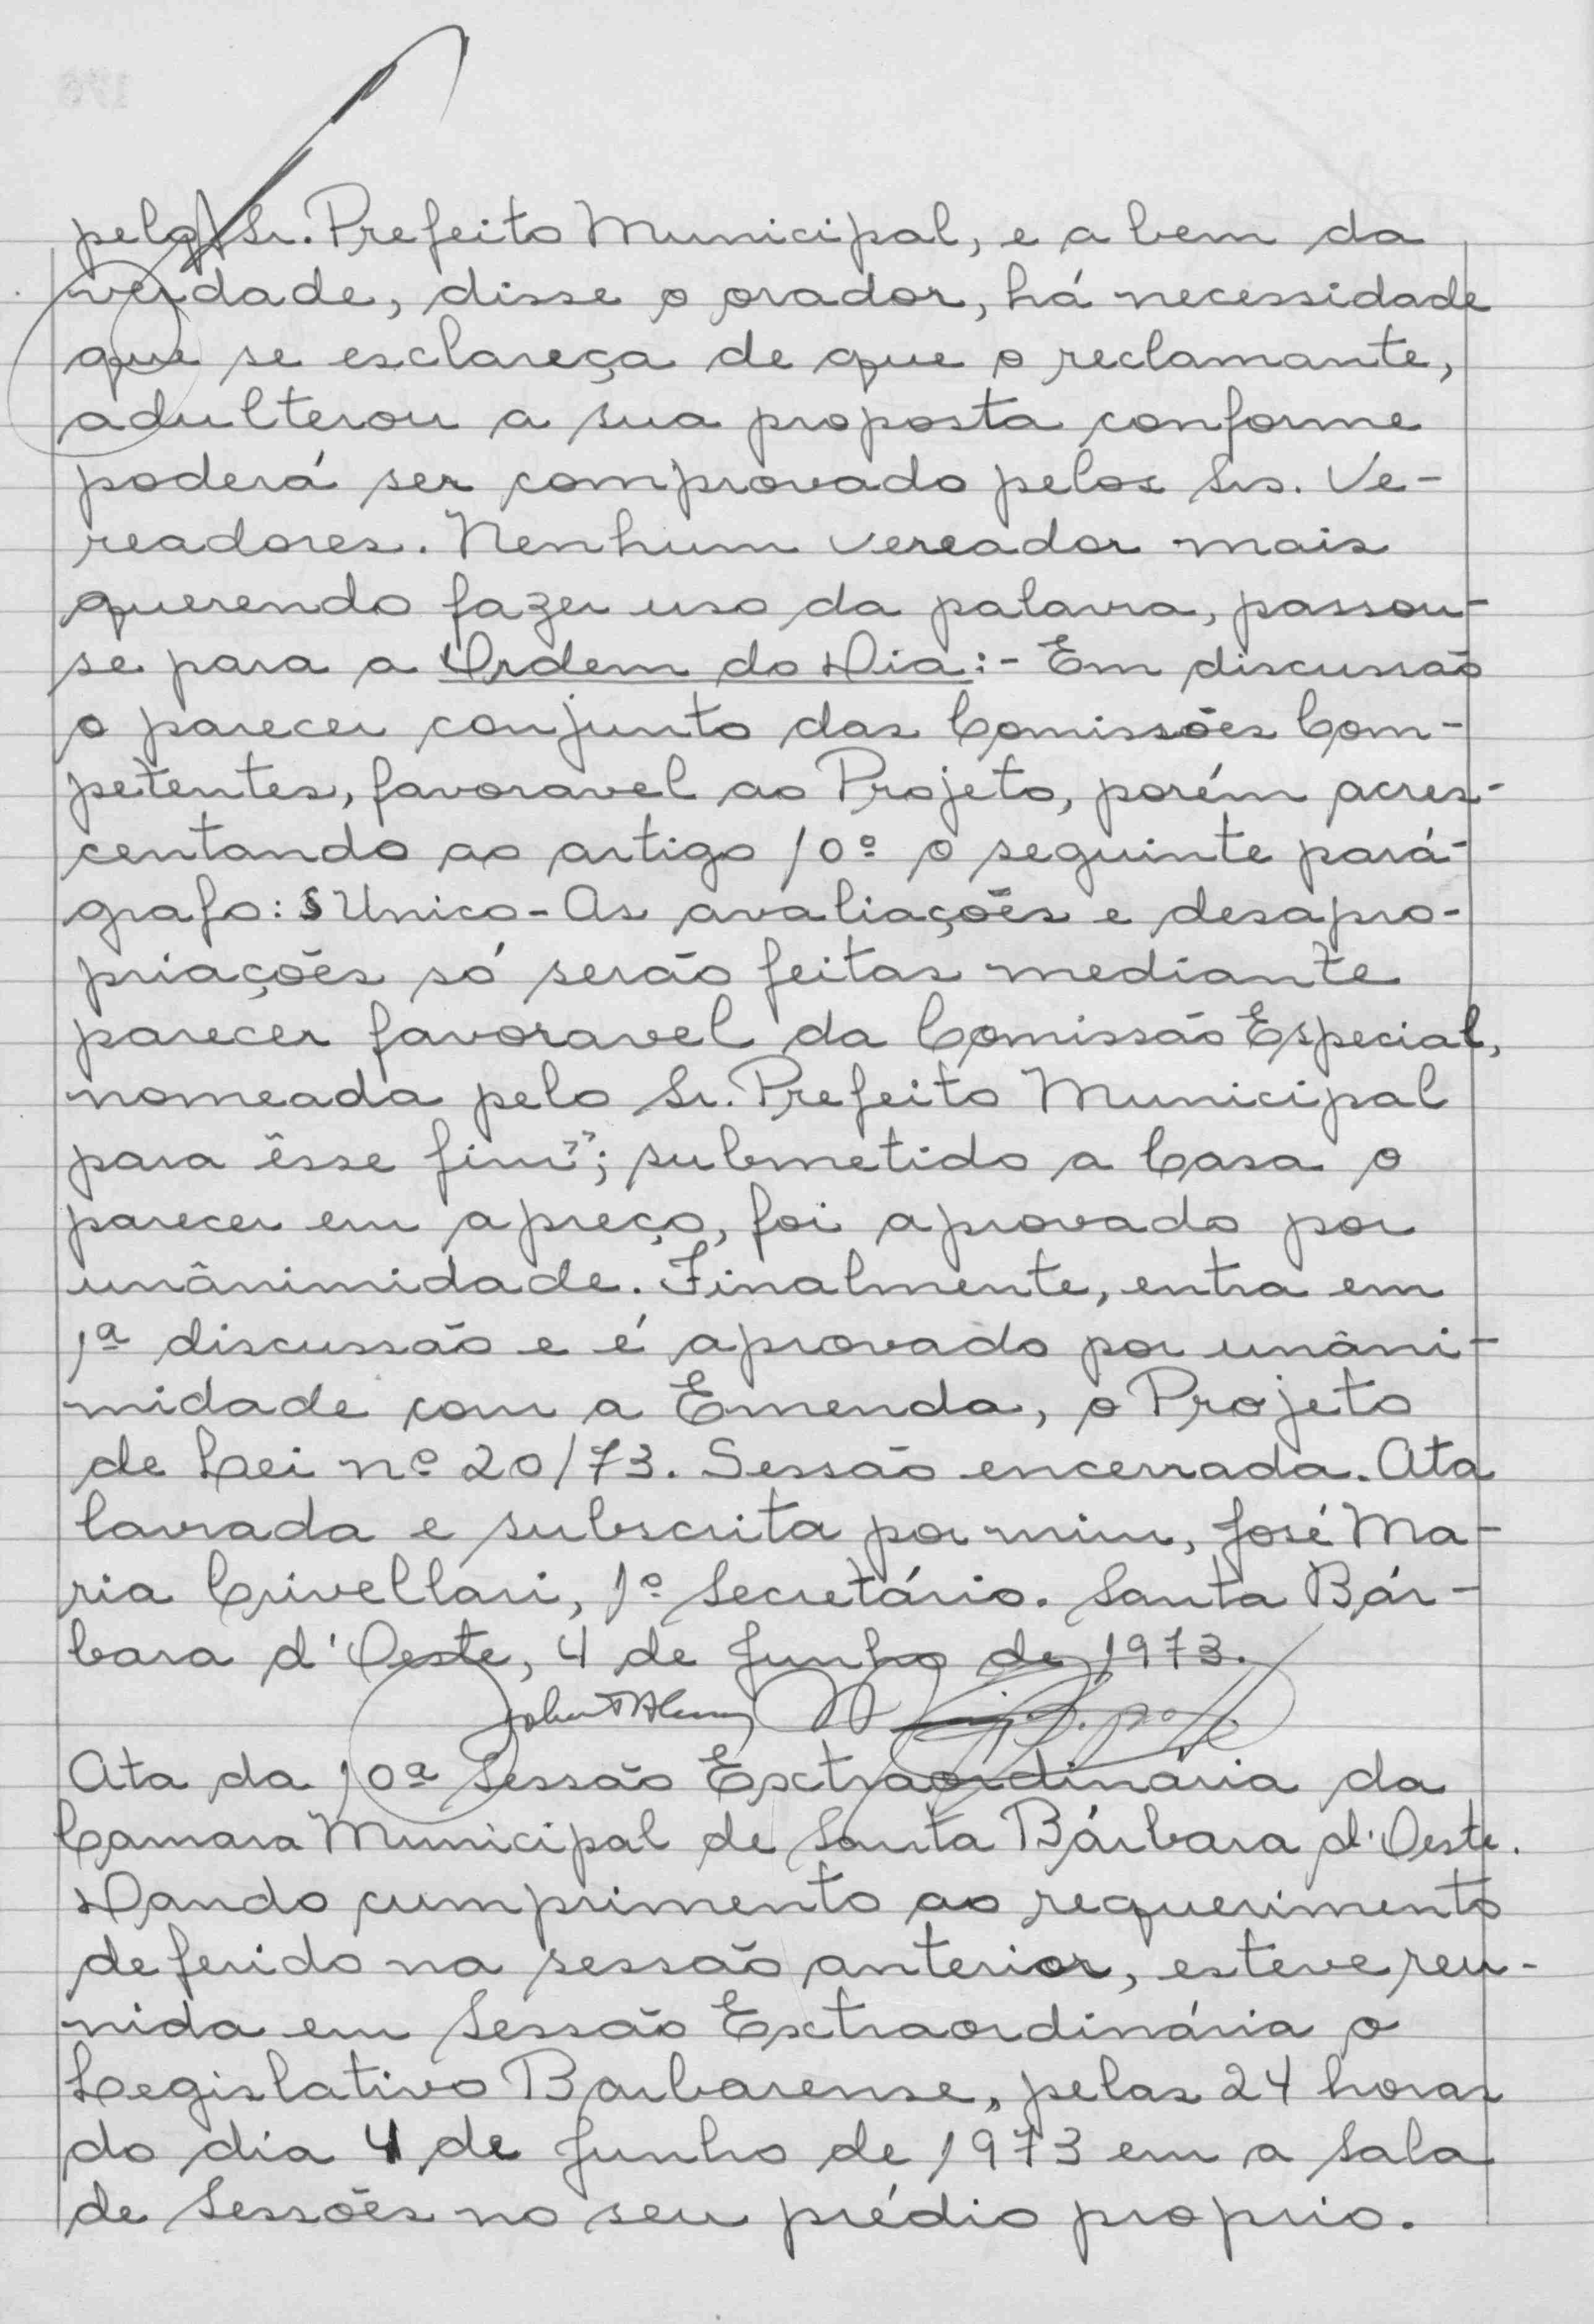 pelo Sr. Prefeito Municipal, e a bem da
verdade, disse o orador, há necessidade
que se esclareça de que o reclamante,
adulterou a sua proposta conforme
poderá ser comprovado pelos Srs. Ve-
readores. Nenhum vereador mais
querendo fazer uso da palavra, passou-
se para a Ordem do Dia:- Em discussão
o parecer conjunto das Comissões Com-
petentes, favoravel ao Projeto, porém acres-
centando ao artigo 10º o seguinte pará-
grafo: § Unico - As avaliações e desapro-
priações só serão feitas mediante
parecer favoravel da Comissão Especial,
nomeada pelo Sr. Prefeito Municipal
para êsse fim"; submetido a Casa o
parecer em apreço, foi aprovado por
unânimidade. Finalmente, entra em
1ª discussão e é aprovado por unâni-
midade com a Emenda, o Projeto
de Lei nº 20/73. Sessão encerrada. Ata
lavrada e subscrita por mim, José Ma-
ria Crivellari, 1º Secretário. Santa Bár-
bara d'Oeste, 4 de Junho de 1973.
Ata da 10ª Sessão Extraordinária da
Camara Municipal de Santa Bárbara d'Oeste.
Dando cumprimento ao requerimento
deferido na sessão anterior, esteve reu-
nida em Sessão Extraordinária o
Legislativo Barbarense, pelas 24 horas
do dia 4 de Junho de 1973 em a Sala
de Sessões no seu prédio proprio.